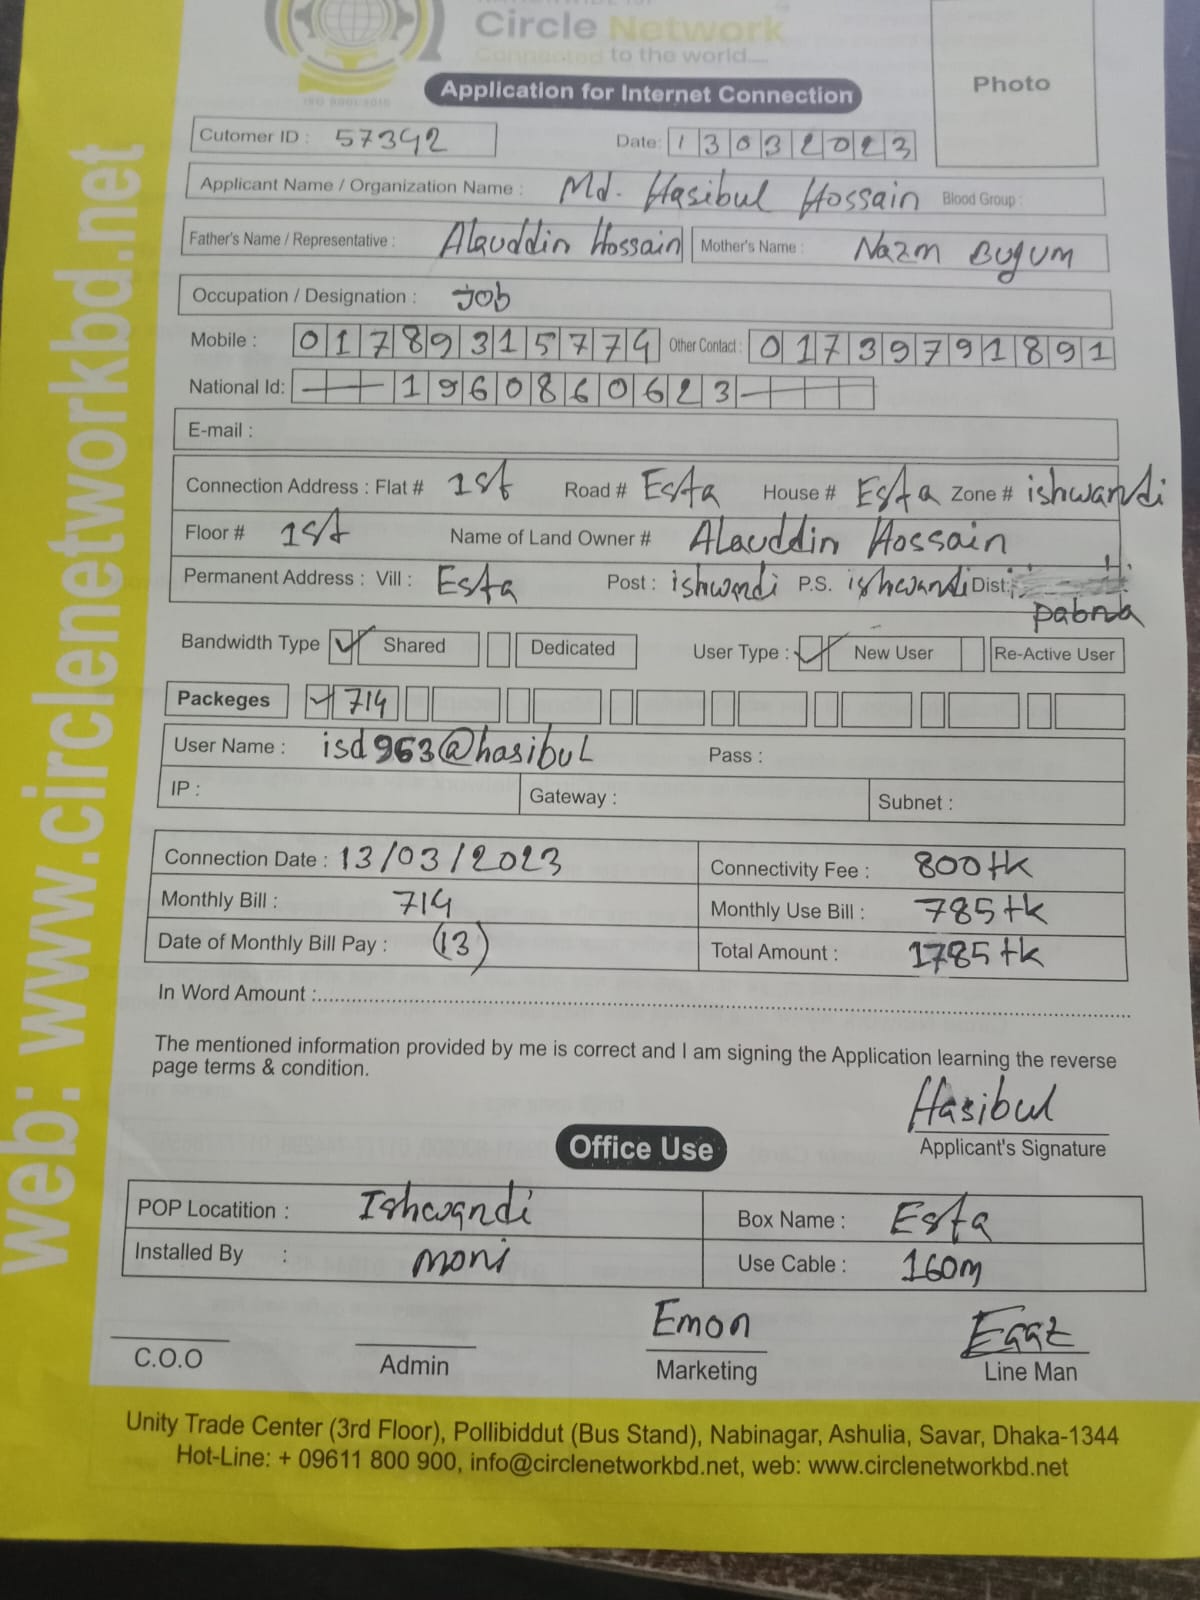 Circle Network
Connected to the world....
ISO 9001:2015
Application for Internet Connection
Photo
Cutomer ID : 57342 Date: 13032023
Applicant Name / Organization Name : Md. Hasibul Hossain Blood Group :
Father's Name / Representative : Alauddin Hossain Mother's Name : Nazm Bugum
Occupation / Designation : Job
Mobile : 01789315774 Other Contact : 01739791891
National Id: 1960860623
E-mail :
Connection Address : Flat # 1st Road # Esta House # Esta Zone # ishwandi
Floor # 1st Name of Land Owner # Alauddin Hossain
Permanent Address : Vill : Esta Post : ishwandi P.S. ishwandi Dist:
pabna
Bandwidth Type Shared Dedicated User Type : New User Re-Active User
Packeges 714
User Name : isd963@hasibul Pass :
IP : Gateway : Subnet :
Connection Date : 13/03/2023 Connectivity Fee : 800tk
Monthly Bill : 714 Monthly Use Bill : 785tk
Date of Monthly Bill Pay : (13) Total Amount : 1785tk
In Word Amount :
The mentioned information provided by me is correct and I am signing the Application learning the reverse
page terms & condition.
Hasibul
Applicant's Signature
Office Use
POP Locatition : Ishwandi Box Name : Esta
Installed By : moni Use Cable : 160m
Emon
C.O.O Admin Marketing Line Man
Unity Trade Center (3rd Floor), Pollibiddut (Bus Stand), Nabinagar, Ashulia, Savar, Dhaka-1344
Hot-Line: + 09611 800 900, info@circlenetworkbd.net, web: www.circlenetworkbd.net
web: www.circlenetworkbd.net